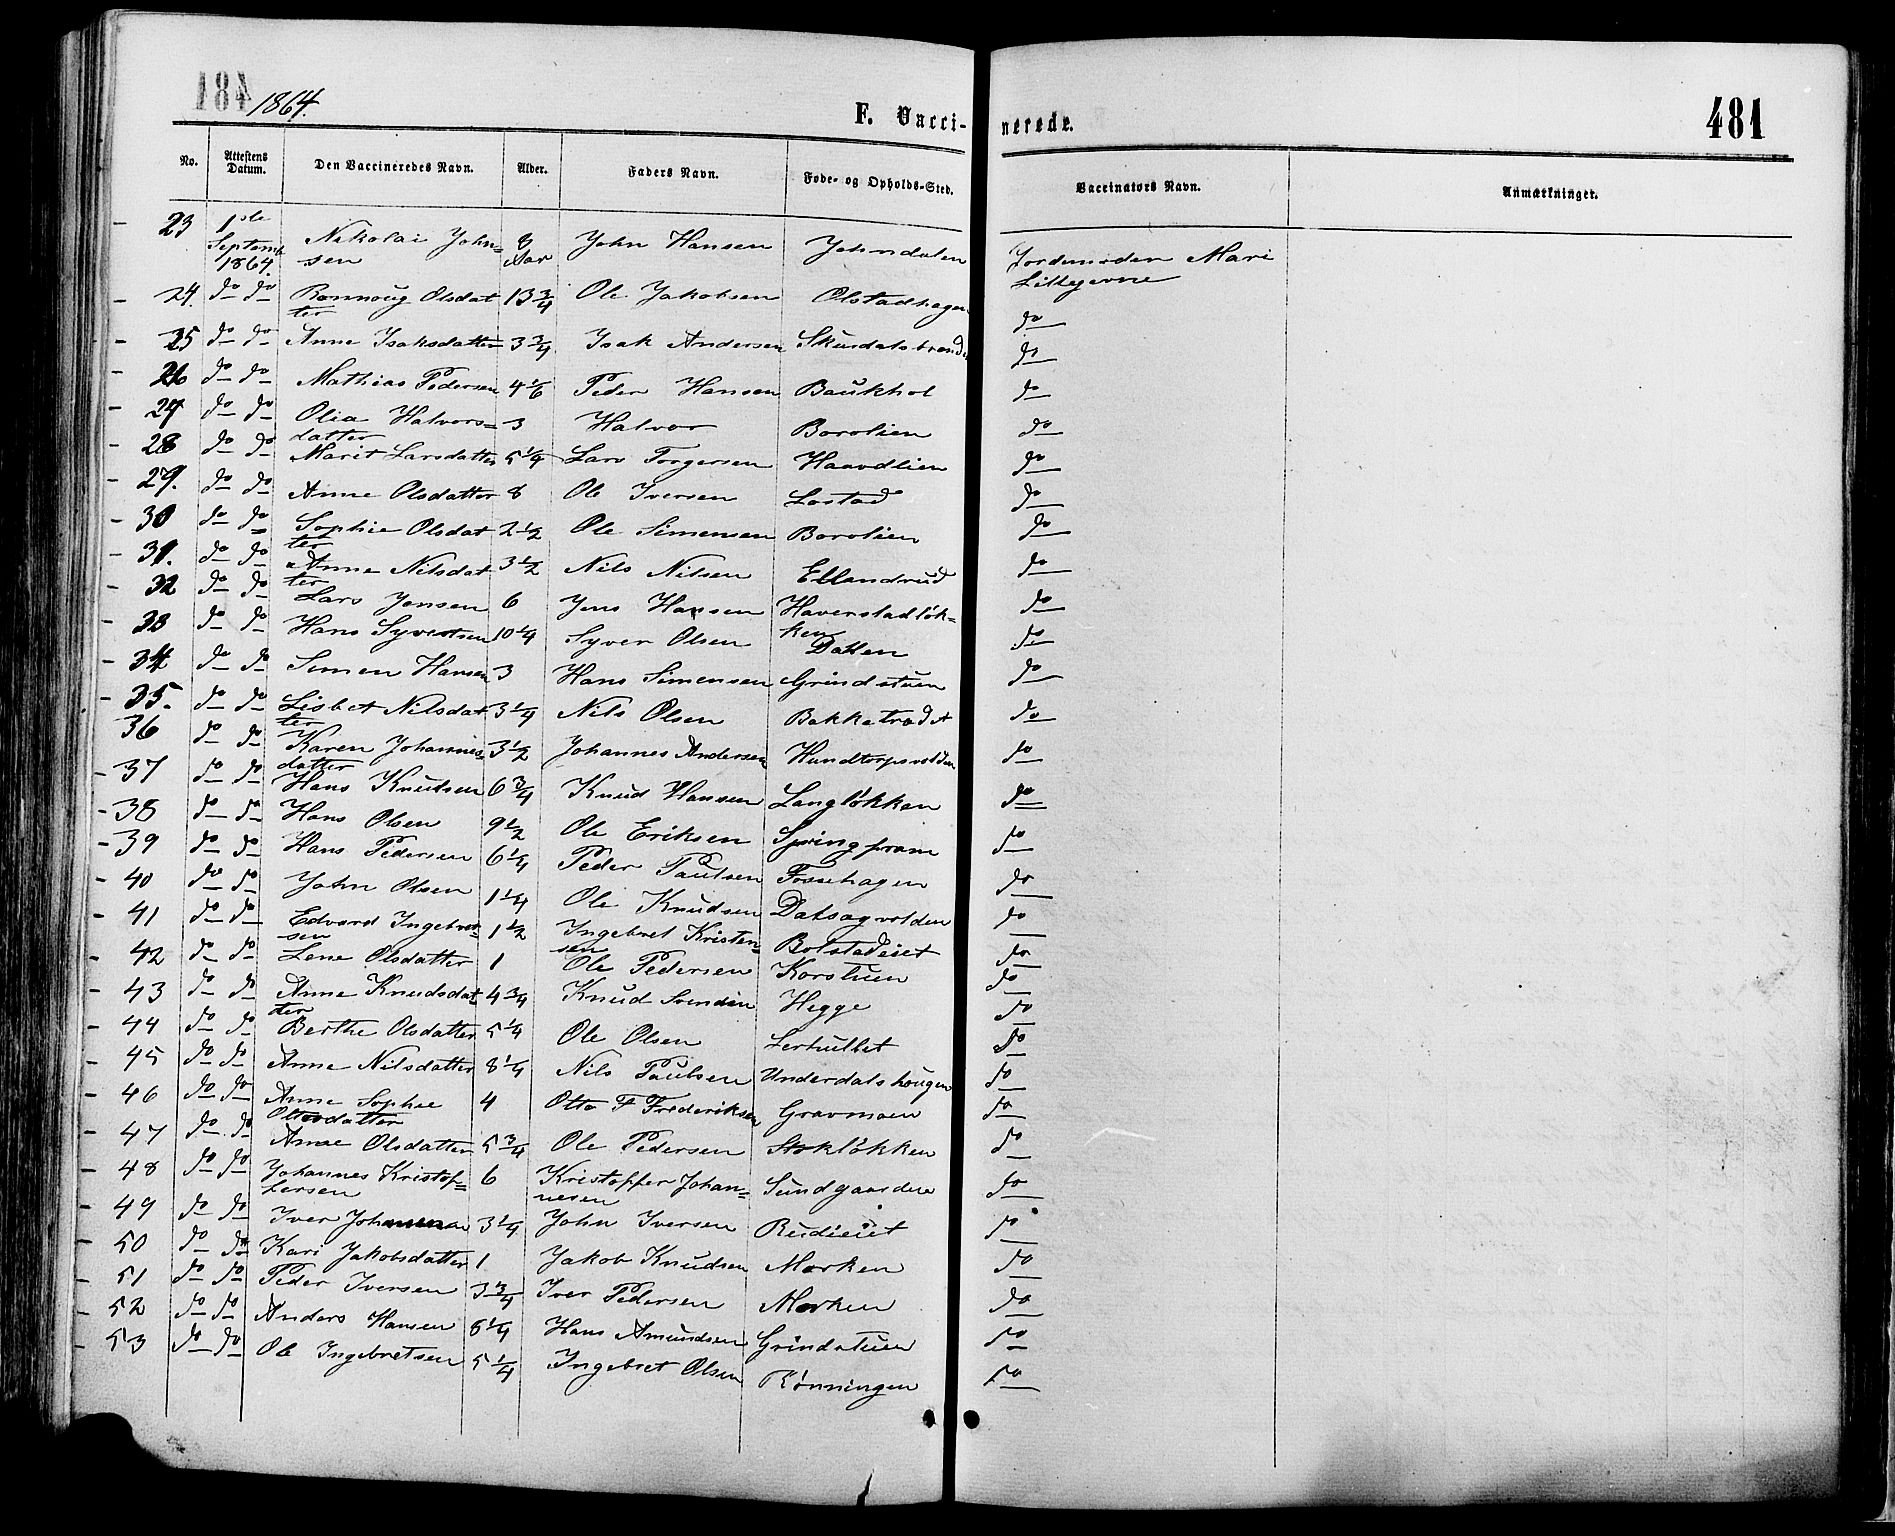 184 1864. F. Vacci- nerede. 481
No. Attestens Datum. Den Vaccineredes Navn. Alder. Faders Navn. Føde- og Opholds-Sted. Vaccinators Navn. Anmærkninger.
23 1ste Septemb 1864. Nikolai John=sen 8 Aar John Hansen Johndalen Jordemoder Mari Lillegevne
24. do do Ronnoug Olsdatter 13 3/4 Ole Jakobsen Olstadhagen do
25 do do Anne Isaksdatter 3 3/4 Isak Andersen do
26 do do Mathias Pedersen 4 1/6 Peder Hansen Baukhol do
27 do do Olia Halvors=datter 3 Halvor Borolien do
28 do do Marit Larsdatter 5 1/4 Lars Torgersen Haavdlien do
29. do do Anne Olsdatter 8 Ole Iversen Lostad do
30 do do Sophie Olsdatter 2 1/2 Ole Simensen Borolien do
31. do do Anne Nilsdatter 3 1/2 Nils Nilsen Ellandrud do
32 do do Lars Jensen 6 Jens Hansen Haverstadløk=ken do
33 do do Hans Syvertsen 10 1/4 Syver Olsen Dalen do
34 do do Simen Hansen 3 Hans Simensen Grindstuen do
35. do do Lisbet Nilsdatter 3 1/4 Nils Olsen Bakketrødet do
36 do do Karen Johannes=datter 3 1/2 Johannes Andersen Hundtorpsvolden do
37 do do Hans Knutsen 6 3/4 Knud Hansen Langløkken do
38 do do Hans Olsen 9 1/2 Ole Eriksen Springfram do
39 do do Hans Pedersen 6 1/4 Peder Paulsen Fossehagen do
40 do do John Olsen 1 1/4 Ole Knudsen Dalsagvolden do
41 do do Edvard Ingebret=sen 1 1/2 Ingebret Kristen=sen Bolstadeiet do
42 do do Lene Olsdatter 1 Ole Pedersen Korstuen do
43 do do Anne Knudsdatter 4 3/4 Knud Svendsen Hegge do
44 do do Berthe Olsdatter 5 1/4 Ole Olsen Lerhullet do
45 do do Anne Nilsdatter 8 1/4 Nils Paulsen Underdalshougen do
46 do do Anne Sophie Ottosdatter 4 Otto F Frederiksen Gravmoen do
47 do do Anne Olsdatter 5 3/4 Ole Pedersen Stokløkken do
48 do do Johannes Kristof=fersen 6 Kristoffer Johan=nesen Sundgaardene do
49 do do Iver Johnsen 3 1/4 John Iversen Rudieiet do
50 do do Kari Jakobsdatter 1 Jakob Knudsen Morken do
51 do do Peder Iversen 3 3/4 Iver Pedersen Morken do
52 do do Anders Hansen 8 1/4 Hans Amundsen Grindstuen do
53 do do Ole Ingebretsen 5 1/4 Ingebret Olsen Rønningen do